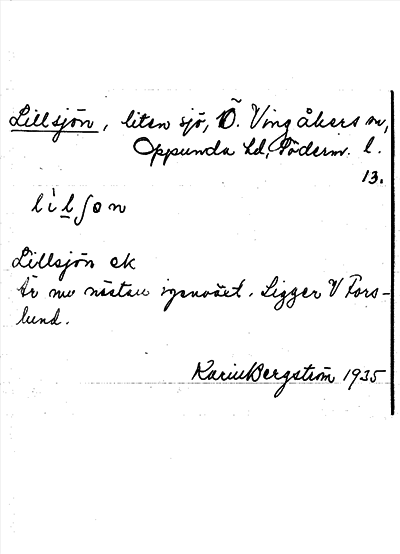 Lillsjön, liten sjö, Ö. Vingåkers sn,
Oppunda hd, Söderm. l.
13.
lìlʃon
Lillsjön ek
Är nu nästan igenväxt. Ligger V Fors-
lund.
Karin Bergström 1935